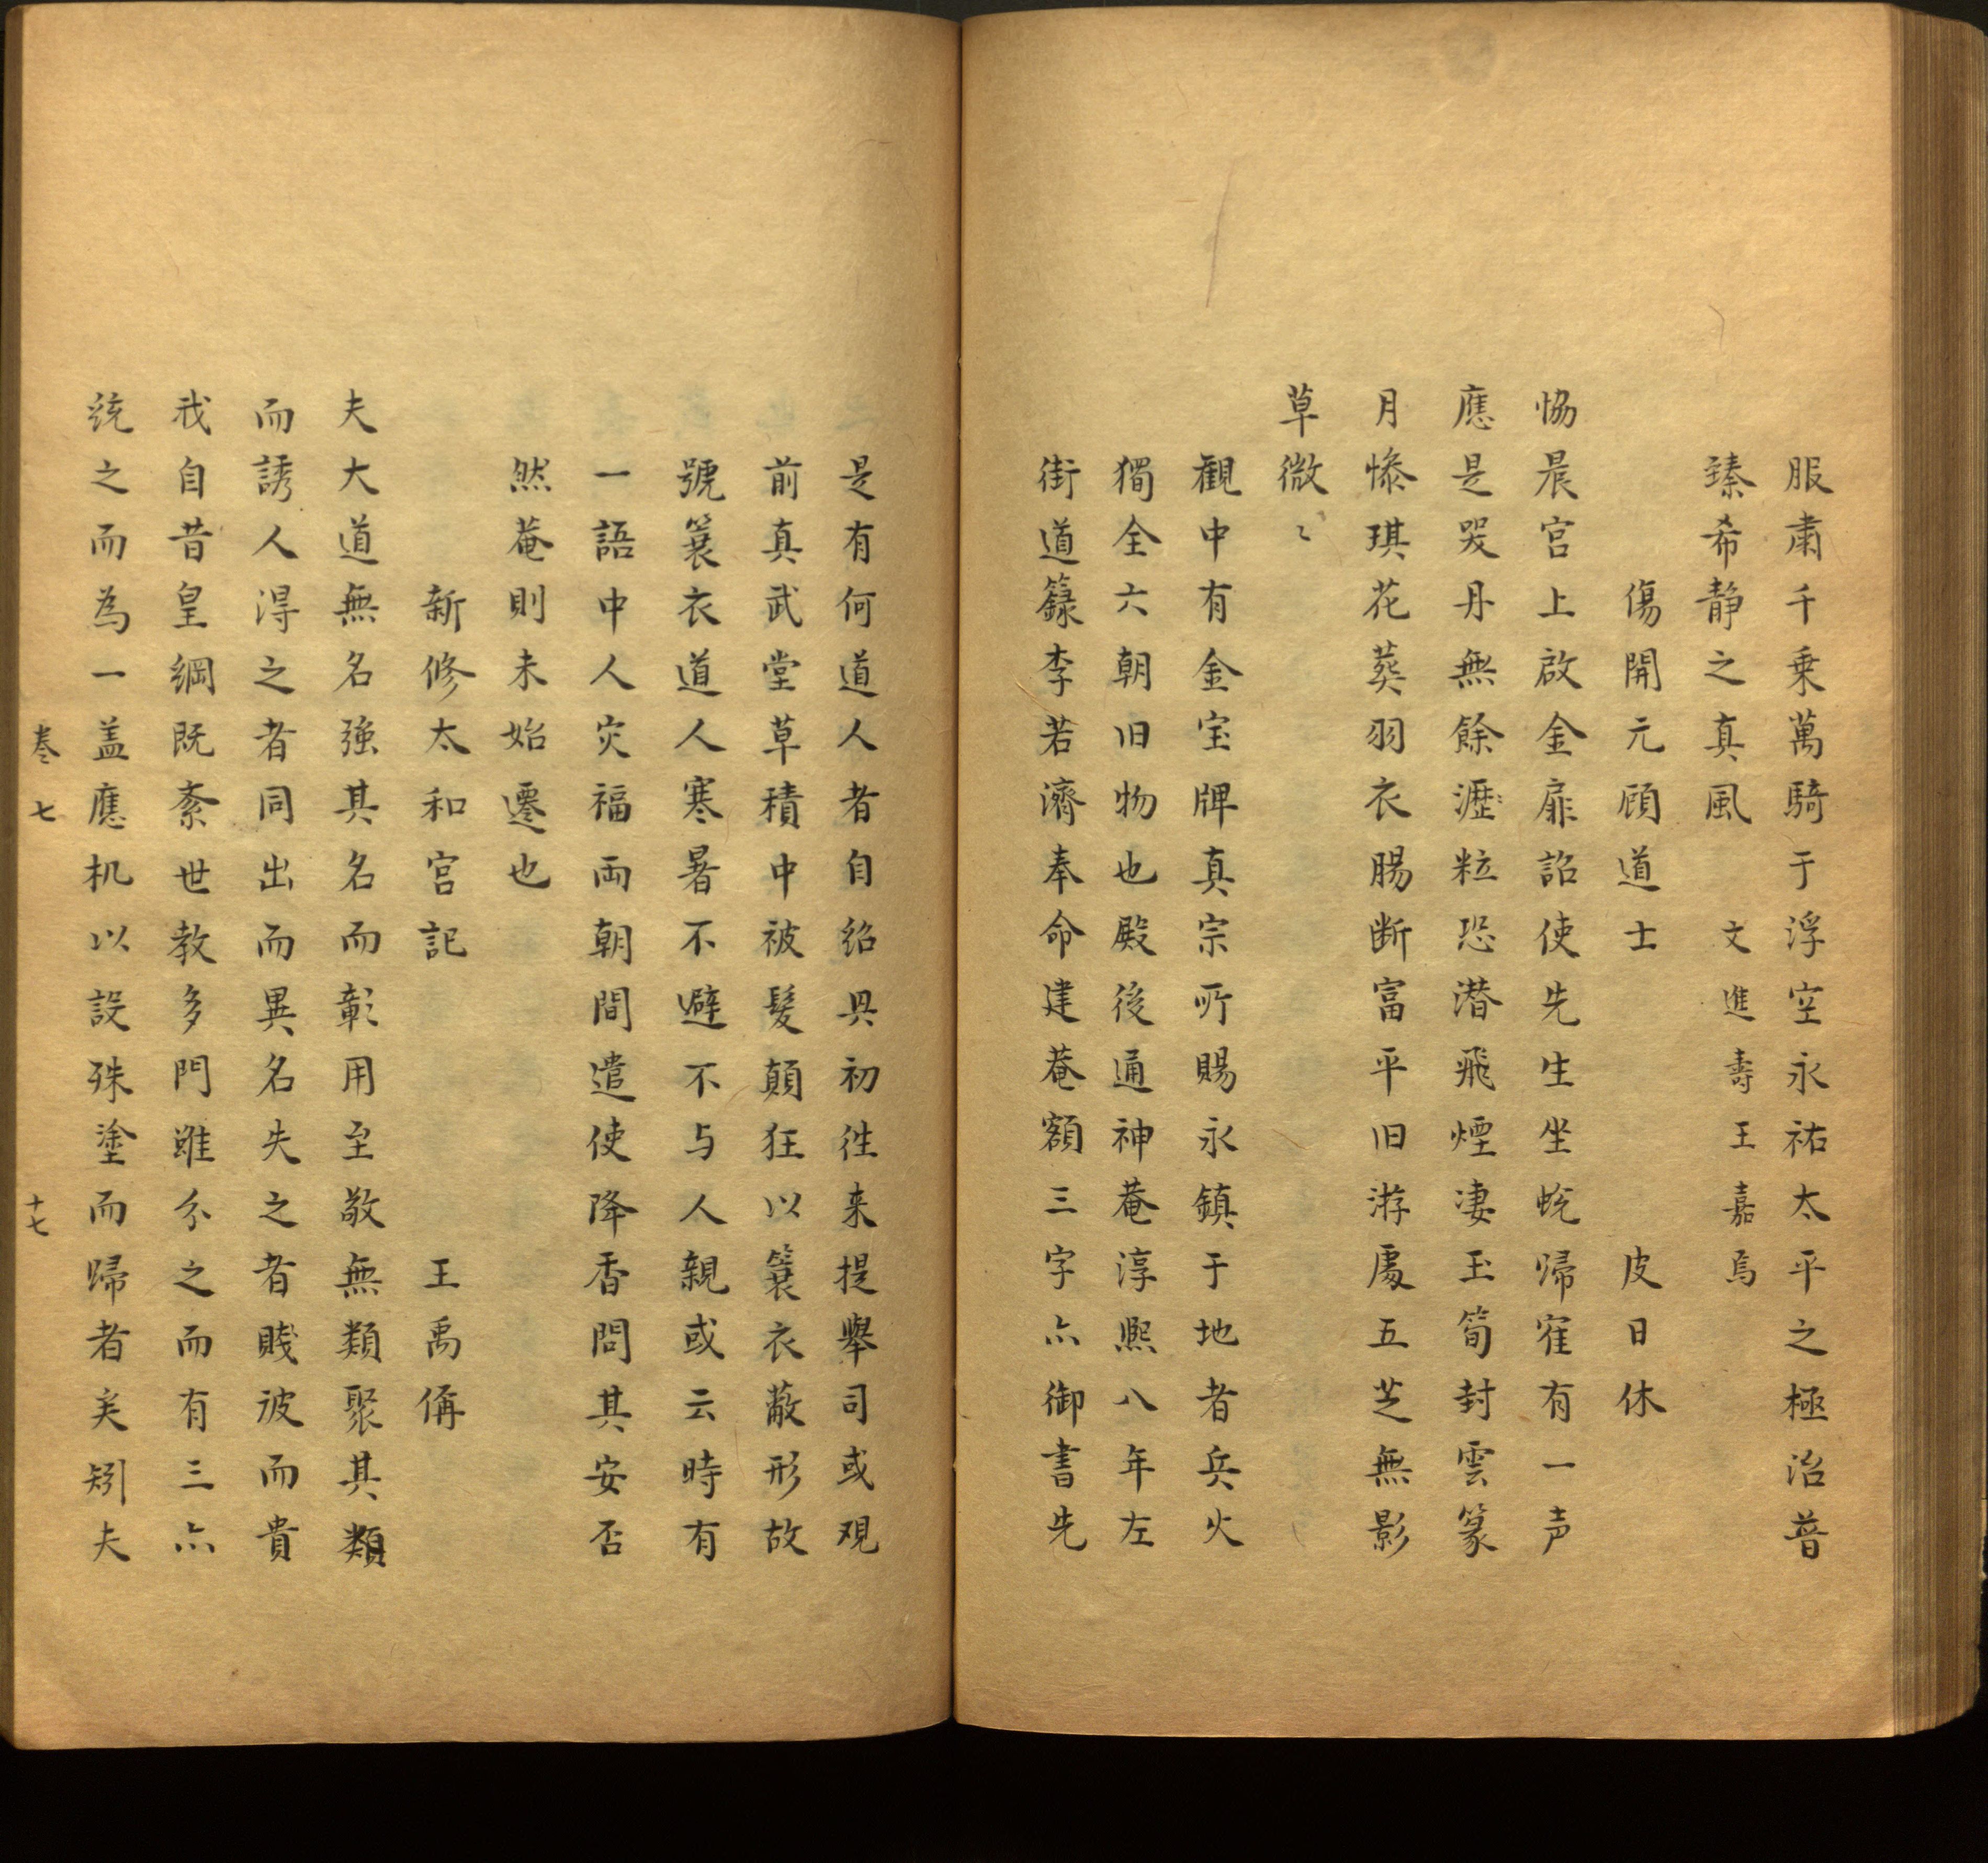 服肅千乗萬騎于浮空永祐太平之極治普
臻希静之真風　文進壽王嘉焉
傷開元顾道士　皮日休
恊晨宫上啟金扉詔使先生坐蛻歸寉有一声
應是哭丹無餘瀝粒恐潜飛煙淒玉筍封雲篆
月惨琪花葵羽衣腸断富平旧游處五芝無影
草微〻
觀中有金宝牌真宗所賜永鎮于地者兵火
獨全六朝旧物也殿後通神菴淳熙八年左
街道籙李若濟奉命建菴額三字亦御書先
是有何道人者自紹具初徃来提舉司或观
前真武堂草積中被髮顛狂以簑衣蔽形故
號簑衣道人寒暑不避不与人親或云時有
一語中人灾福两朝間遣使降香問其安否
然菴則未始遷也
新修太和宫記　王禹偁
夫大道無名強其名而彰用至敬無類聚其類
而誘人淂之者同出而異名失之者賤彼而貴
我自昔皇綱既紊世教多門雖分之而有三亦
統之而為一盖應机以設殊塗而歸者矣矧夫
卷七　十七